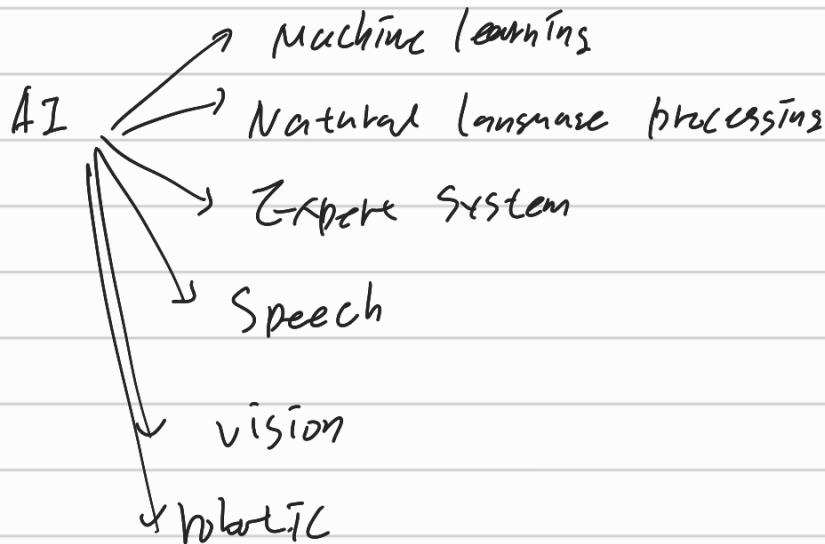 AI
Machine learning
Natural language processing
Expert System
Speech
vision
robotic